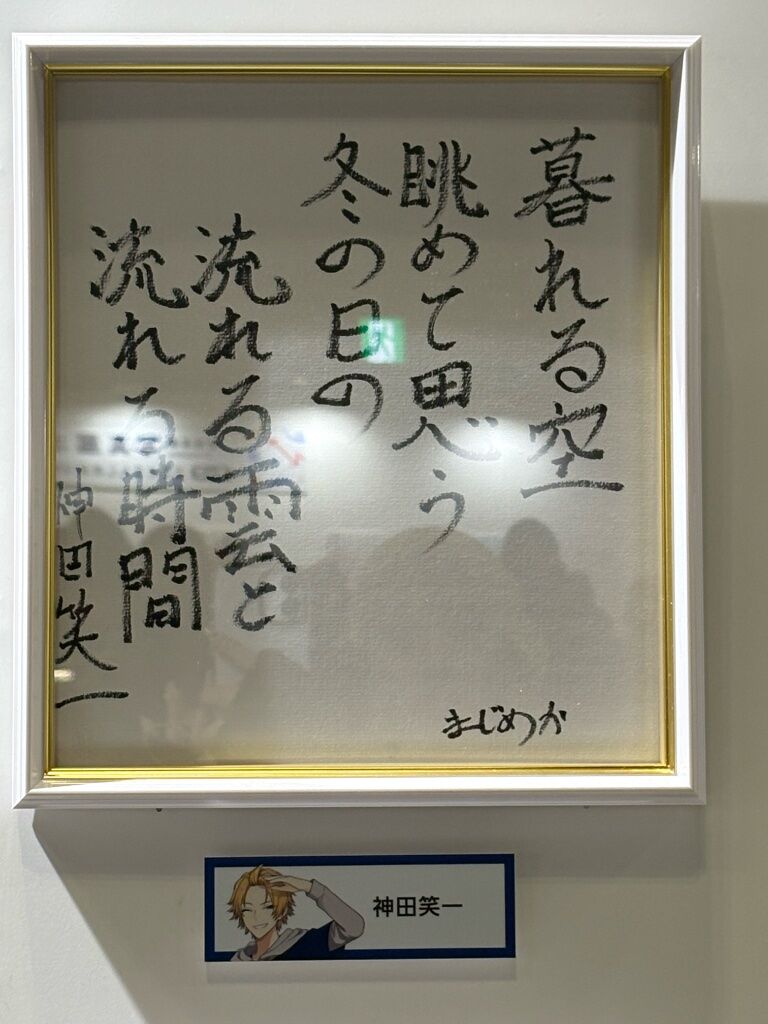 暮れる空
眺めて思う
冬の日の
流れる雲と
流れる時間
神田笑一
まじめか
神田笑一